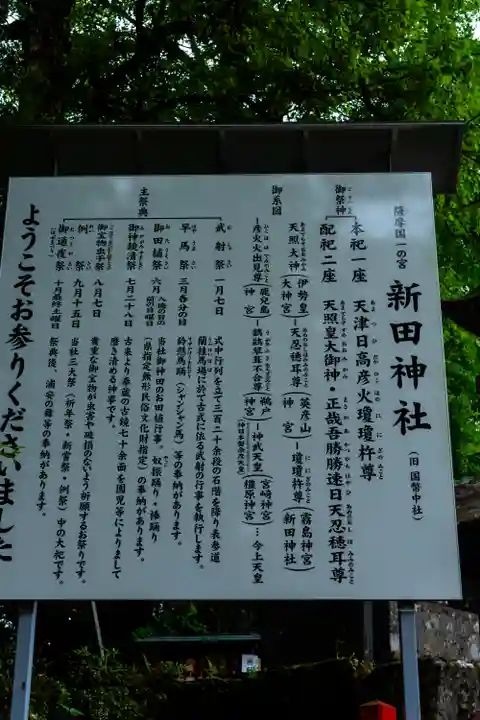 薩摩国一の宮
新田神社
(旧 国幣中社)
御祭神
本祀一座 天津日高彦火瓊瓊杵尊
配祀二座 天照皇大御神・正哉吾勝勝速日天忍穂耳尊
御系図
天照大神(伊勢皇大神宮)―天忍穂耳尊(英彦山神宮)―瓊瓊杵尊(霧島神宮)(新田神社)
―彦火火出見尊(鹿児島神宮)―鸕鷀草葺不合尊(鵜戸神宮)―神武天皇(宮崎神宮)(橿原神宮)…今上天皇
主祭典
武射祭 一月七日
式中行列を立て三百二十余段の石階を降り表参道
蘭挂馬場に於て古式に依る武射の行事を執行します。
早馬祭 三月春分の日
鈴懸馬踊(シャンシャン馬)等の奉納があります。
御田植祭 六月
当社御神田のお田植行事。奴振踊り・棒踊り
(県指定無形民俗文化財指定)の奉納があります。
御神鏡清祭 七月二十八日
古来より奉蔵の古鏡七十余面を園児等によりまして
磨き清める神事です。
御宝物虫干祭 八月七日
貴重な御宝物が虫害や破損のないよう祈願するお祭りです。
例祭 九月十五日
当社三大祭(祈年祭・新嘗祭・例祭)中の大祀です。
御通夜祭
祭典後、浦安の舞等の奉納があります。
ようこそお参りくださいました